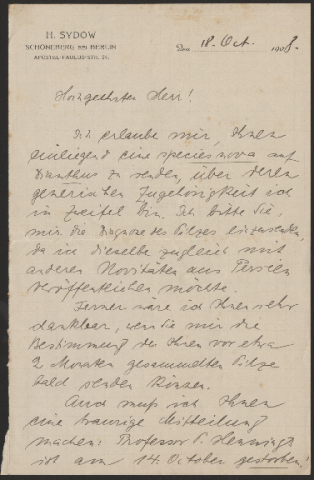 H. SYDOW
SCHÖNEBERG BEI BERLIN
APOSTEL PAULUS-STR. 24.
Den 18. Oct. 1908.
Hochgeehrter Herr!
Ich erlaube mir, Ihnen
einliegend eine species nova auf
Dianthus zu senden, über deren
generischen Zugehörigkeit ich
in Zweifel bin. Ich bitte Sie,
mir die Diagnose des Pilzes einzusenden,
da ich dieselbe zugleich mit
anderen Novitäten aus Persien
veröffentlichen möchte.
Ferner wäre ich Ihnen sehr
dankbar, wenn Sie mir die
Bestimmung der Ihnen vor etwa
2 Monaten gesammelten Pilze
bald senden können.
Auch muß ich Ihnen
eine traurige Mitteilung
machen: Professor P. Hennings
ist am 14. October gestorben!